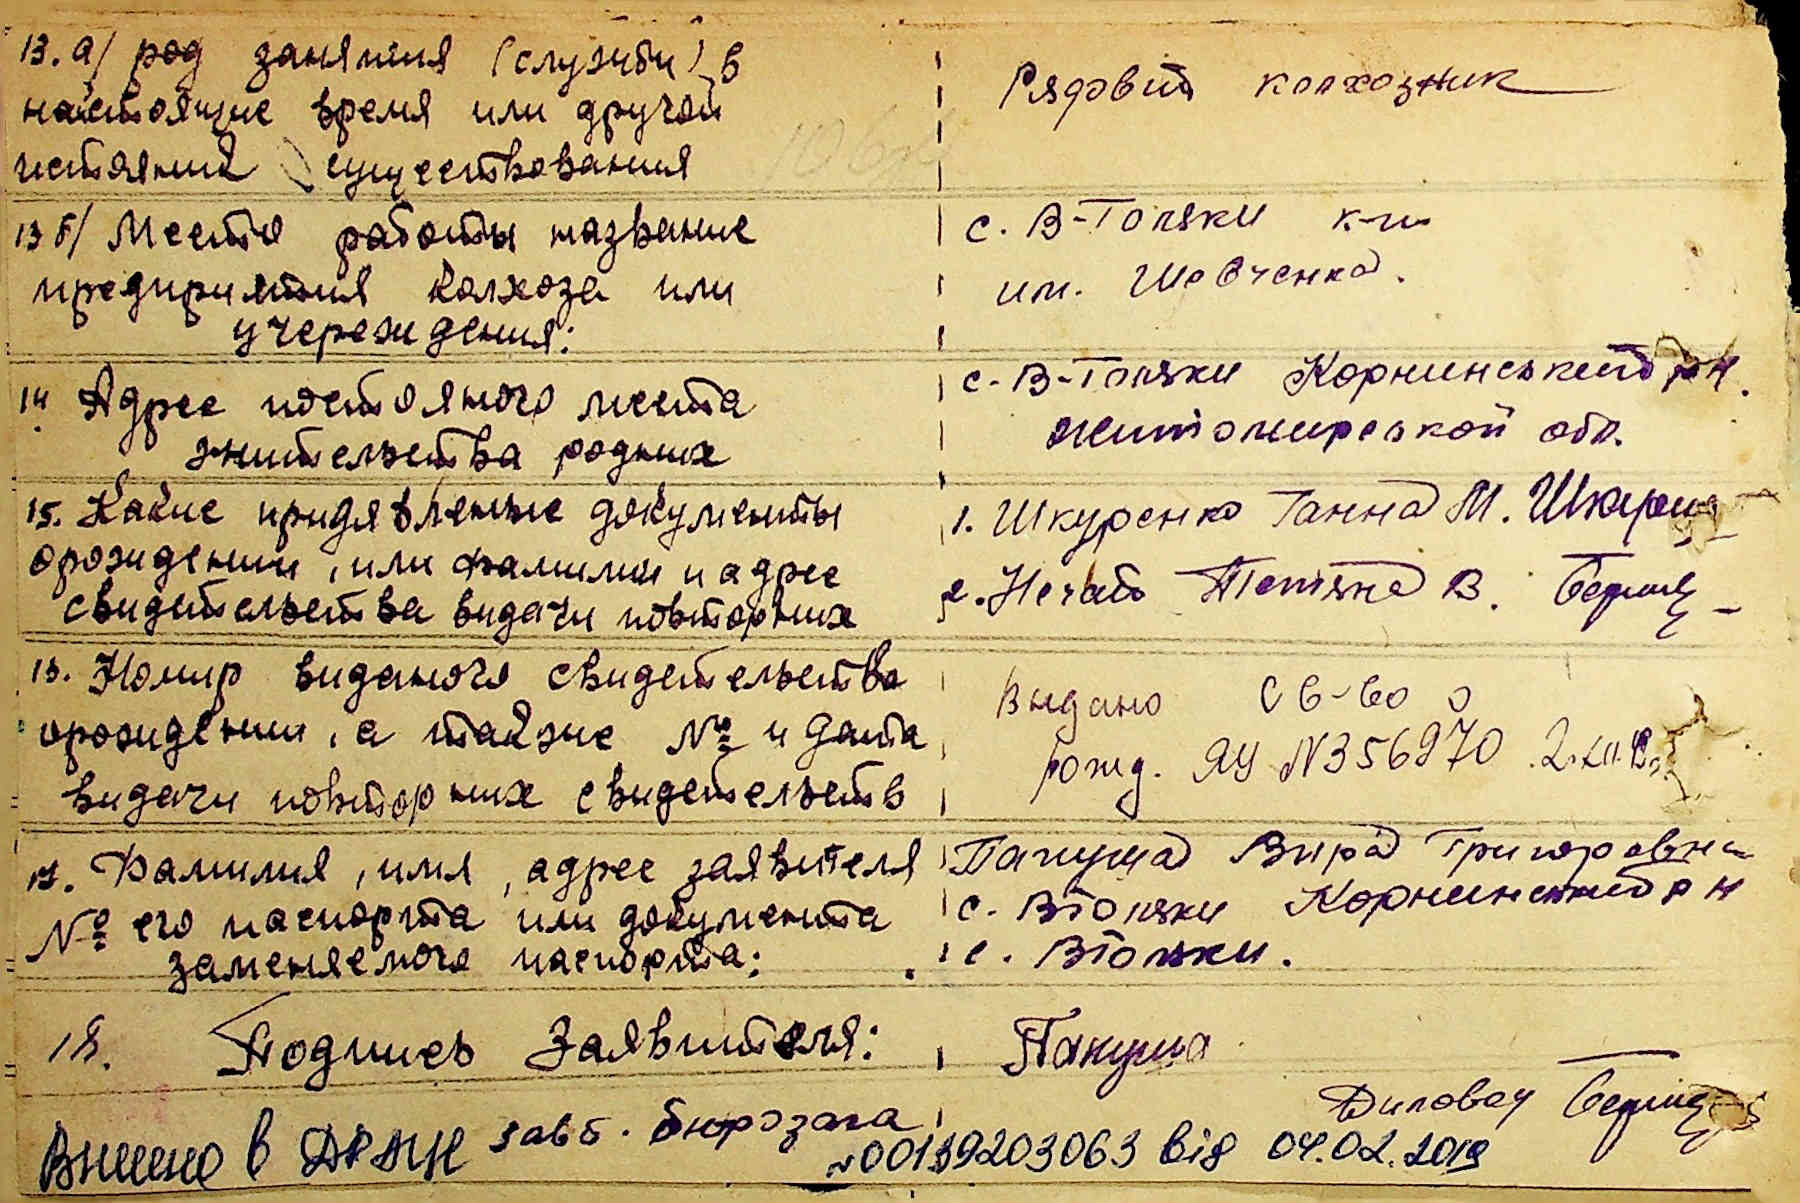 13. а/ род занятия (служби) в
настоящие время или другой
источник существования
Рядовий колхозник
13 б/ Место работы название
предприятия колхоза или
учереждения:
с. В-Голяки к-п
им. Шевченка.
14 Адрес постояного места
жительства родних
с. В-Голяки Корнинський р-н.
житомирской обл.
15. Какие придявленые документы
орождении, или фамилии и адрес
свидетельства видачи повторних
1. Шкуренко Ганна М.
2. Нечай Тетяна В.
Номир виданого свидетельства
орождении, а также № и дата
видачи повторних свидетельств
Видано св-во о
рожд. ЯУ N356970
17. Фамилия, имя, адрес заявителя
№ его паспорта или документа
заменяемого паспорта:
Папуша Вира Григоровна
с. ВГоляки Корнинський р н
с. ВГоляки.
18. Подпись Заявителя:
Папуша
зав б. бюрозага
Внесено в ДРАЦС
№00139203063 від 04.02.2019